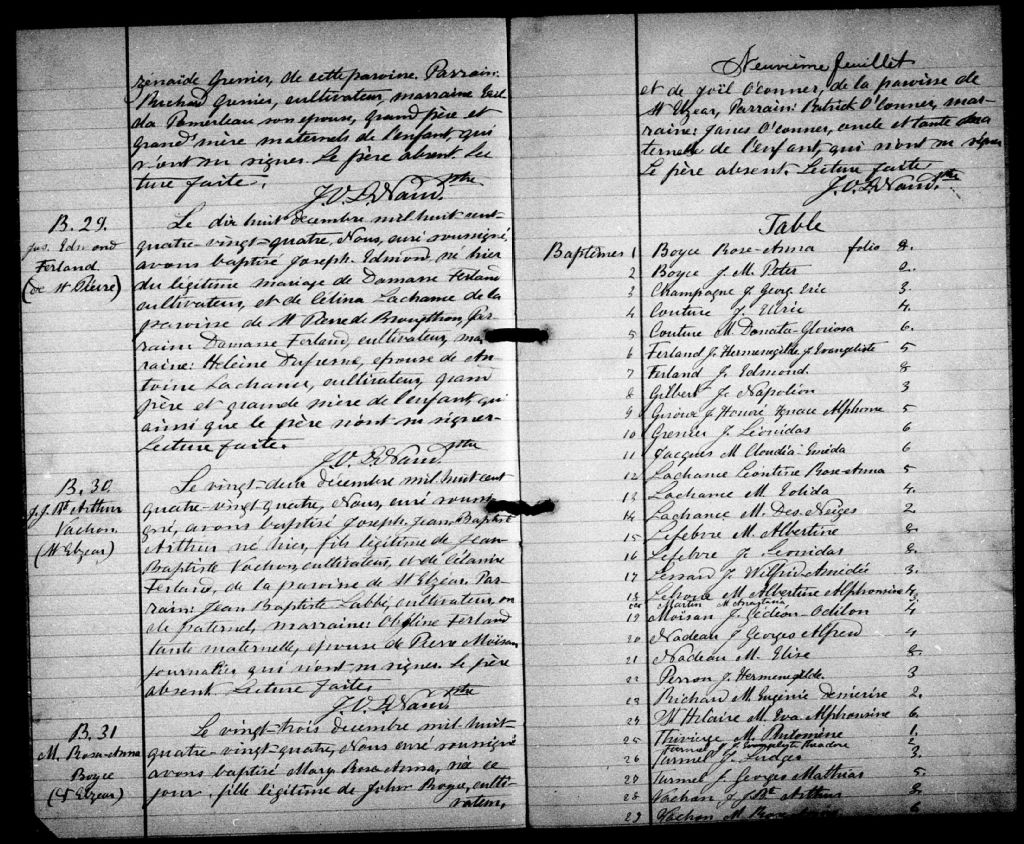 zénaïde Grenier, de cette paroisse. Parrain:
Richard Grenier, cultivateur, marraine
Pomerleau son épouse, grand père et
grand'mère maternels de l'enfant, qui
n'ont su signer. Le père absent. Lec
ture faite.
J.V.
ptre
B. 29.
Jos. Edmond
Ferland
(de St Pierre)
Le dix huit décembre mil huit cent
quatre-vingt-quatre, Nous, curé soussigné,
avons baptisé Joseph-Edmond, né hier
du légitime mariage de Damasse Ferland
cultivateur, et de Célina Lachance de la
paroisse de St Pierre de Broughton, Par-
rain: Damasse Ferland, cultivateur, mar-
raine: Helène Dufresne, épouse de An-
toine Lachance, cultivateur, grand
père et grande mère de l'enfant qui
ainsi que le père n'ont su signer.
Lecture faite.
J.V.
ptre
B. 30.
J.J. Bte Arthur
Vachon.
(St Elzear)
Le vingt-deux décembre mil huit cent
quatre-vingt-quatre, Nous, curé soussi-
gné, avons baptisé Joseph, Jean, Baptiste
Arthur né hier, fils légitime de Jean
Baptiste Vachon, cultivateur, et de
Ferland, de la paroisse de St Elzéar. Par-
rain: Jean Baptiste Labbé, cultivateur, on
cle paternel, marraine: Ferland
tante maternelle, épouse de Pierre Moïsan
journalier qui n'ont su signer. Le père
absent. Lecture faite.
J.V.
ptre
B. 31
M. Rose-Anna
Boyce
(St Elzear)
Le vingt-trois décembre mil huit-
quatre-vingt-quatre, Nous curé soussigné
avons baptisé Mary Rose Anna, née ce
jour, fille légitime de John Boyce, culti-
vateur,
Neuvième feuillet
et de Joël O'Conner, de la paroisse de
St Elzear, Parrain: Patrick O'Conner, mar-
raine: Janes O'Conner, oncle et tante ma
ternelle de l'enfant, qui n'ont su signer
Le père absent. Lecture faite
J.V.
ptre
Table
Baptêmes 1 Boyce Rose-Anna folio 8.
2 Boyce J. M. Peter 2.
3 Champagne J. Georg. Eric 3.
4 Couture J. Ulric 4.
5 Couture M. Donata-Gloriosa 6.
6 Ferland J. Hermenegilde J. Evangeliste 5
7 Ferland J. Edmond. 8
8 Gilbert J. Napoléon 3
9 Giroux J. Honoré Ignace Alphonse 5
10 Grenier J. Léonidas 6
11 Jacques M. Claudia 6
12 Lachance Léontine Rose-Anna 5
13 Lachance M. 4.
14 Lachance M. Des-Neiges 2
15 Lefebvre M. Albertine 8
16 Lefebvre J. Leonidas 8.
17 Lessard J. Wilfrid-Amédée 3.
18 M. Albertine Alphonsine 4
Martin M. Anastasia
19 Moïsan J. Gédéon-Odilon 4
20 Nadeau J. Georges Alfred 4
21 Nadeau M. Elise 8
22 Perron J. Hermenégilde. 3
23 Richard M. Eugénie 2.
24 St Hilaire M. Eva Alphonsine 6.
25 Thivierge M. 1.
Turmel J. J. Evangeliste Théodore 2
26 Turmel J. 3.
27 Turmel J. Georges Matthias 5.
28 Vachon J. J. Bte Arthur 8
29 Vachon M. Rose-Anna 6